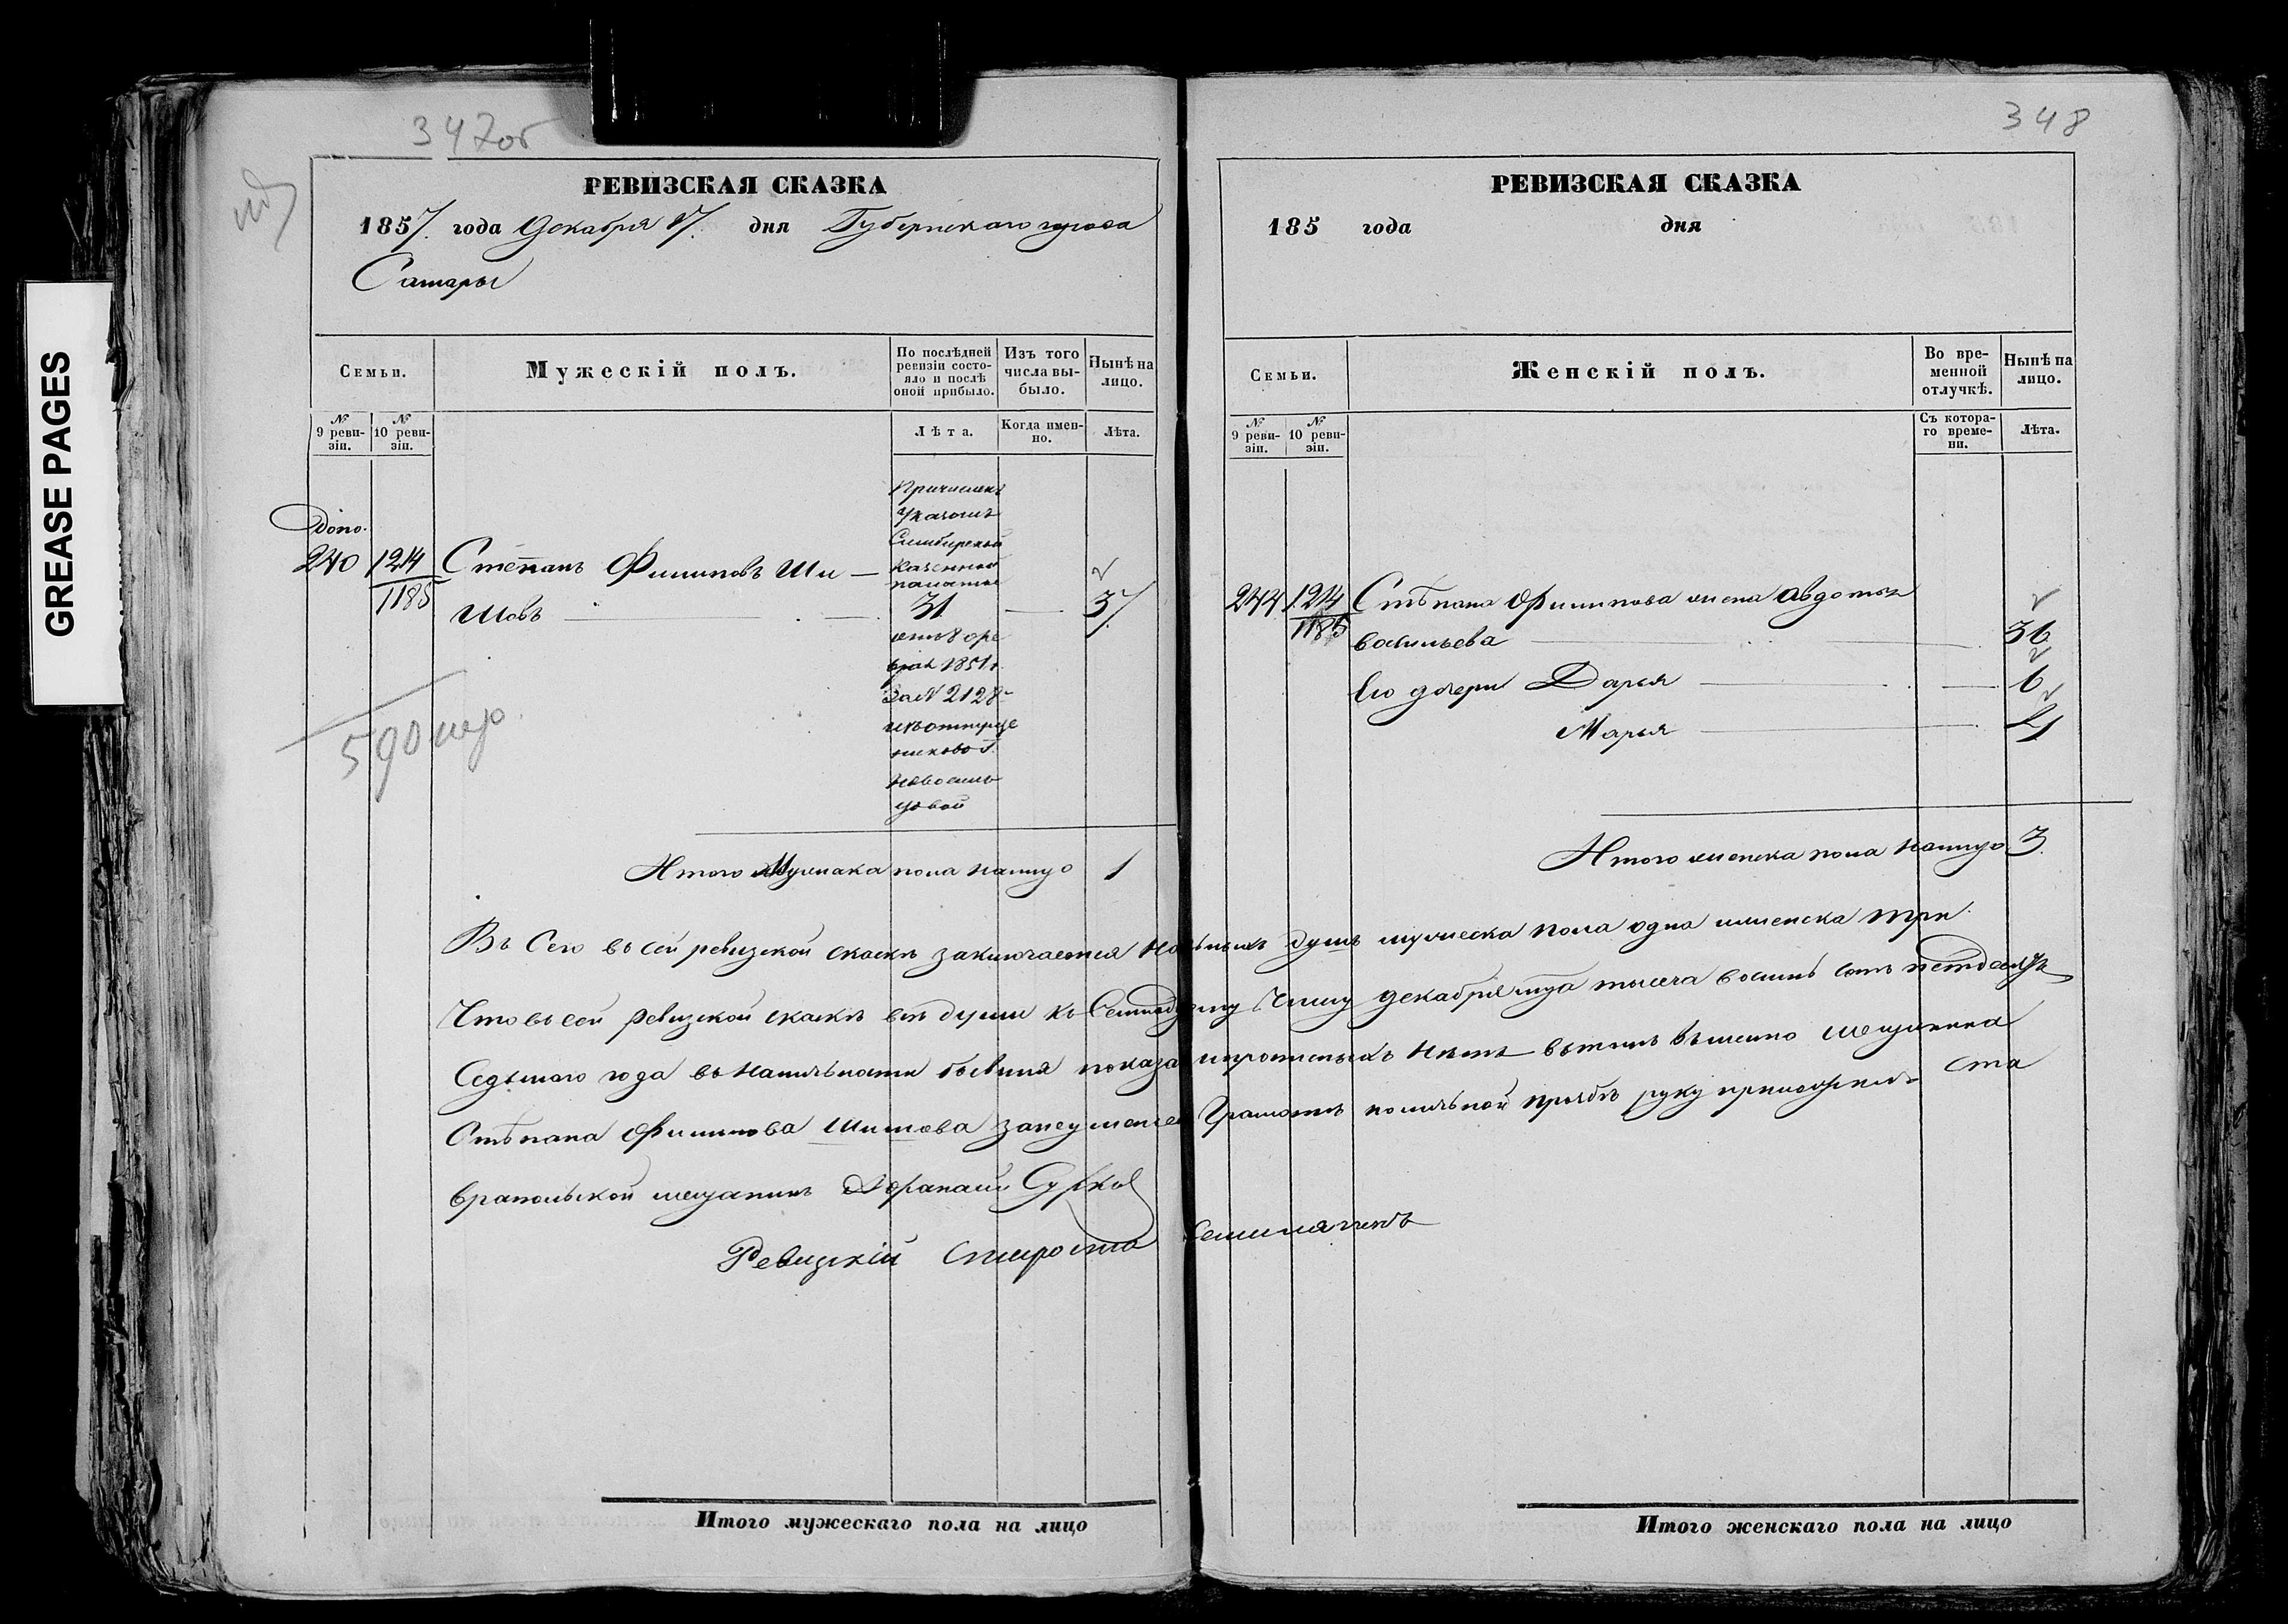 347об
РЕВИЗСКАЯ СКАЗКА
1857. года Декабря 17. дня Губернскаго города
Самары
Семьи.
Мужескій полъ.
По послѣдней ревизіи состояло и послѣ оной прибыло.
Изъ того числа выбыло.
Нынѣ на лицо.
№ 9 ревизіи.
№ 10 ревизіи.
Лѣта.
Когда именно.
Лѣта.
Допо.
240 1214/1185 Степанъ Филиповъ Ши-
шовъ
Причисленъ
Указомъ
Симбирской
Казенной
палаты
31
37
1851 г.
за № 2128
Новосиль
цовой
590
Итого Мужеска пола налицо 1
Въ Сего въ сей ревизской скаскѣ заключается наличныхъ душъ мужеска пола одна иженска три.
Что въ сей ревизской скаскѣ всѣ души къ декабря тысеча восимь сотъ
Седьмаго года въ наличьности бывшия нѣтъ вътомъ вместо мещанина
Стѣпана Филипова Шишова занеумение Грамоте поличьной прозбѣ руку приложилъ ста
врапольской мещанинъ Сурков
Ревизскій Староста
GREASE PAGES
348
РЕВИЗСКАЯ СКАЗКА
185 года дня
Семьи.
Женскій полъ.
Во временной отлучкѣ.
Нынѣ на лицо.
№ 9 ревизіи.
№ 10 ревизіи.
Съ котораго времени.
Лѣта.
244 1214/1185 Стѣпана Филипова жена Авдотья
Васильева 36
Его дочери Дарья 6
Марья
Итого женска пола налицо 3.
Итого мужескаго пола на лицо
Итого женскаго пола на лицо